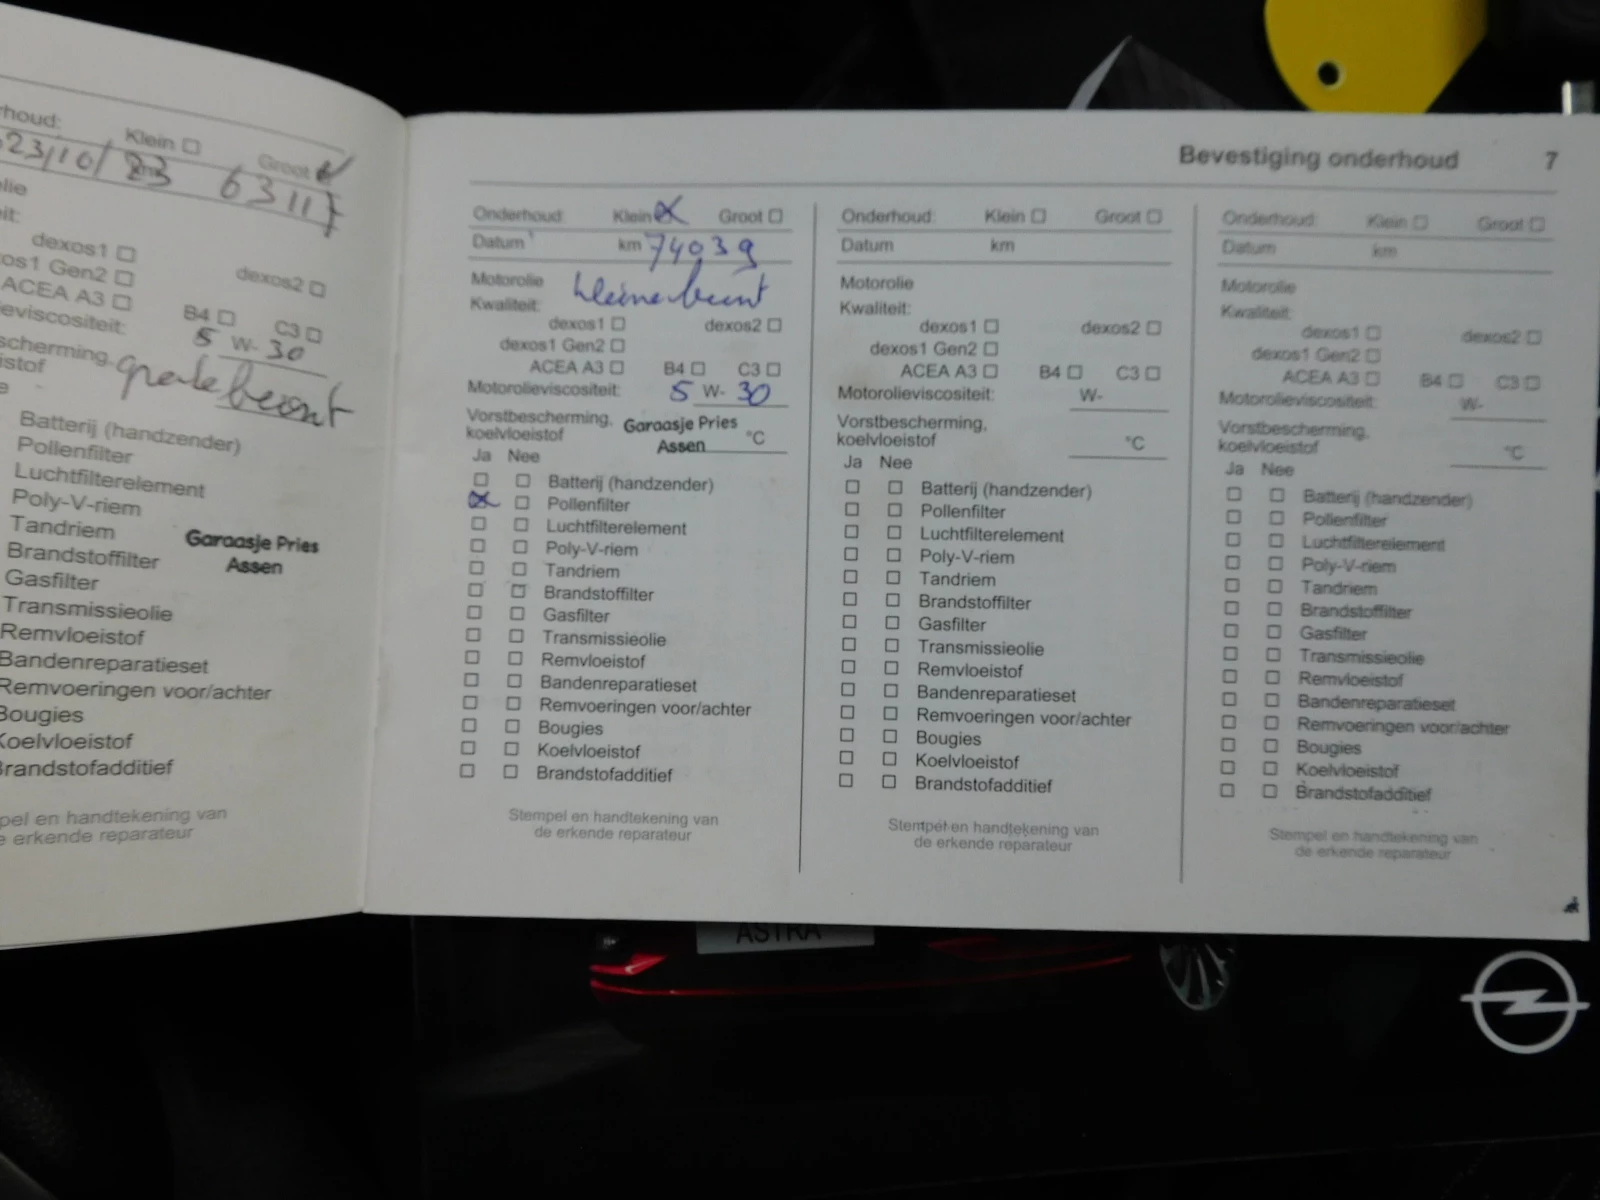 houd: Klein ☐ Groot
23/10/23 63117
lie
it:
dexos1 ☐ dexos2 ☐
os1 Gen2 ☐
ACEA A3 ☐ B4 ☐ C3 ☐
lieviscositeit: 5 W- 30
scherming, grote beurt
istof
e
Batterij (handzender)
Pollenfilter
Luchtfilterelement
Poly-V-riem
Tandriem
Brandstoffilter
Garaasje Pries
Assen
Gasfilter
Transmissieolie
Remvloeistof
Bandenreparatieset
Remvoeringen voor/achter
Bougies
Koelvloeistof
Brandstofadditief
pel en handtekening van
e erkende reparateur
Bevestiging onderhoud 7
Onderhoud: Klein ☒ Groot ☐
Datum km 74039
Motorolie kleine beurt
Kwaliteit:
dexos1 ☐ dexos2 ☐
dexos1 Gen2 ☐
ACEA A3 ☐ B4 ☐ C3 ☐
Motorolieviscositeit: 5 W- 30
Vorstbescherming, Garaasje Pries
koelvloeistof Assen °C
Ja Nee
☐ ☐ Batterij (handzender)
☒ ☐ Pollenfilter
☐ ☐ Luchtfilterelement
☐ ☐ Poly-V-riem
☐ ☐ Tandriem
☐ ☐ Brandstoffilter
☐ ☐ Gasfilter
☐ ☐ Transmissieolie
☐ ☐ Remvloeistof
☐ ☐ Bandenreparatieset
☐ ☐ Remvoeringen voor/achter
☐ ☐ Bougies
☐ ☐ Koelvloeistof
☐ ☐ Brandstofadditief
Stempel en handtekening van
de erkende reparateur
Onderhoud: Klein ☐ Groot ☐
Datum km
Motorolie
Kwaliteit:
dexos1 ☐ dexos2 ☐
dexos1 Gen2 ☐
ACEA A3 ☐ B4 ☐ C3 ☐
Motorolieviscositeit: W-
Vorstbescherming,
koelvloeistof °C
Ja Nee
☐ ☐ Batterij (handzender)
☐ ☐ Pollenfilter
☐ ☐ Luchtfilterelement
☐ ☐ Poly-V-riem
☐ ☐ Tandriem
☐ ☐ Brandstoffilter
☐ ☐ Gasfilter
☐ ☐ Transmissieolie
☐ ☐ Remvloeistof
☐ ☐ Bandenreparatieset
☐ ☐ Remvoeringen voor/achter
☐ ☐ Bougies
☐ ☐ Koelvloeistof
☐ ☐ Brandstofadditief
Stempel en handtekening van
de erkende reparateur
Onderhoud: Klein ☐ Groot ☐
Datum km
Motorolie
Kwaliteit:
dexos1 ☐ dexos2 ☐
dexos1 Gen2 ☐
ACEA A3 ☐ B4 ☐ C3 ☐
Motorolieviscositeit: W-
Vorstbescherming,
koelvloeistof °C
Ja Nee
☐ ☐ Batterij (handzender)
☐ ☐ Pollenfilter
☐ ☐ Luchtfilterelement
☐ ☐ Poly-V-riem
☐ ☐ Tandriem
☐ ☐ Brandstoffilter
☐ ☐ Gasfilter
☐ ☐ Transmissieolie
☐ ☐ Remvloeistof
☐ ☐ Bandenreparatieset
☐ ☐ Remvoeringen voor/achter
☐ ☐ Bougies
☐ ☐ Koelvloeistof
☐ ☐ Brandstofadditief
Stempel en handtekening van
de erkende reparateur
ASTRA